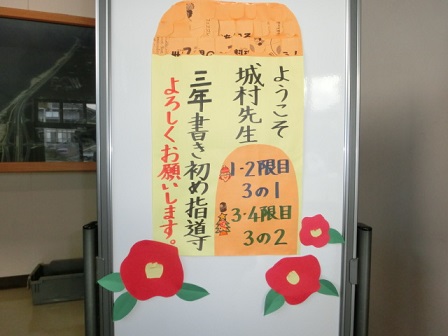 ようこそ
城村先生
1・2限目
3の1
3・4限目
3の2
三年書き初め指導
よろしくお願いします。